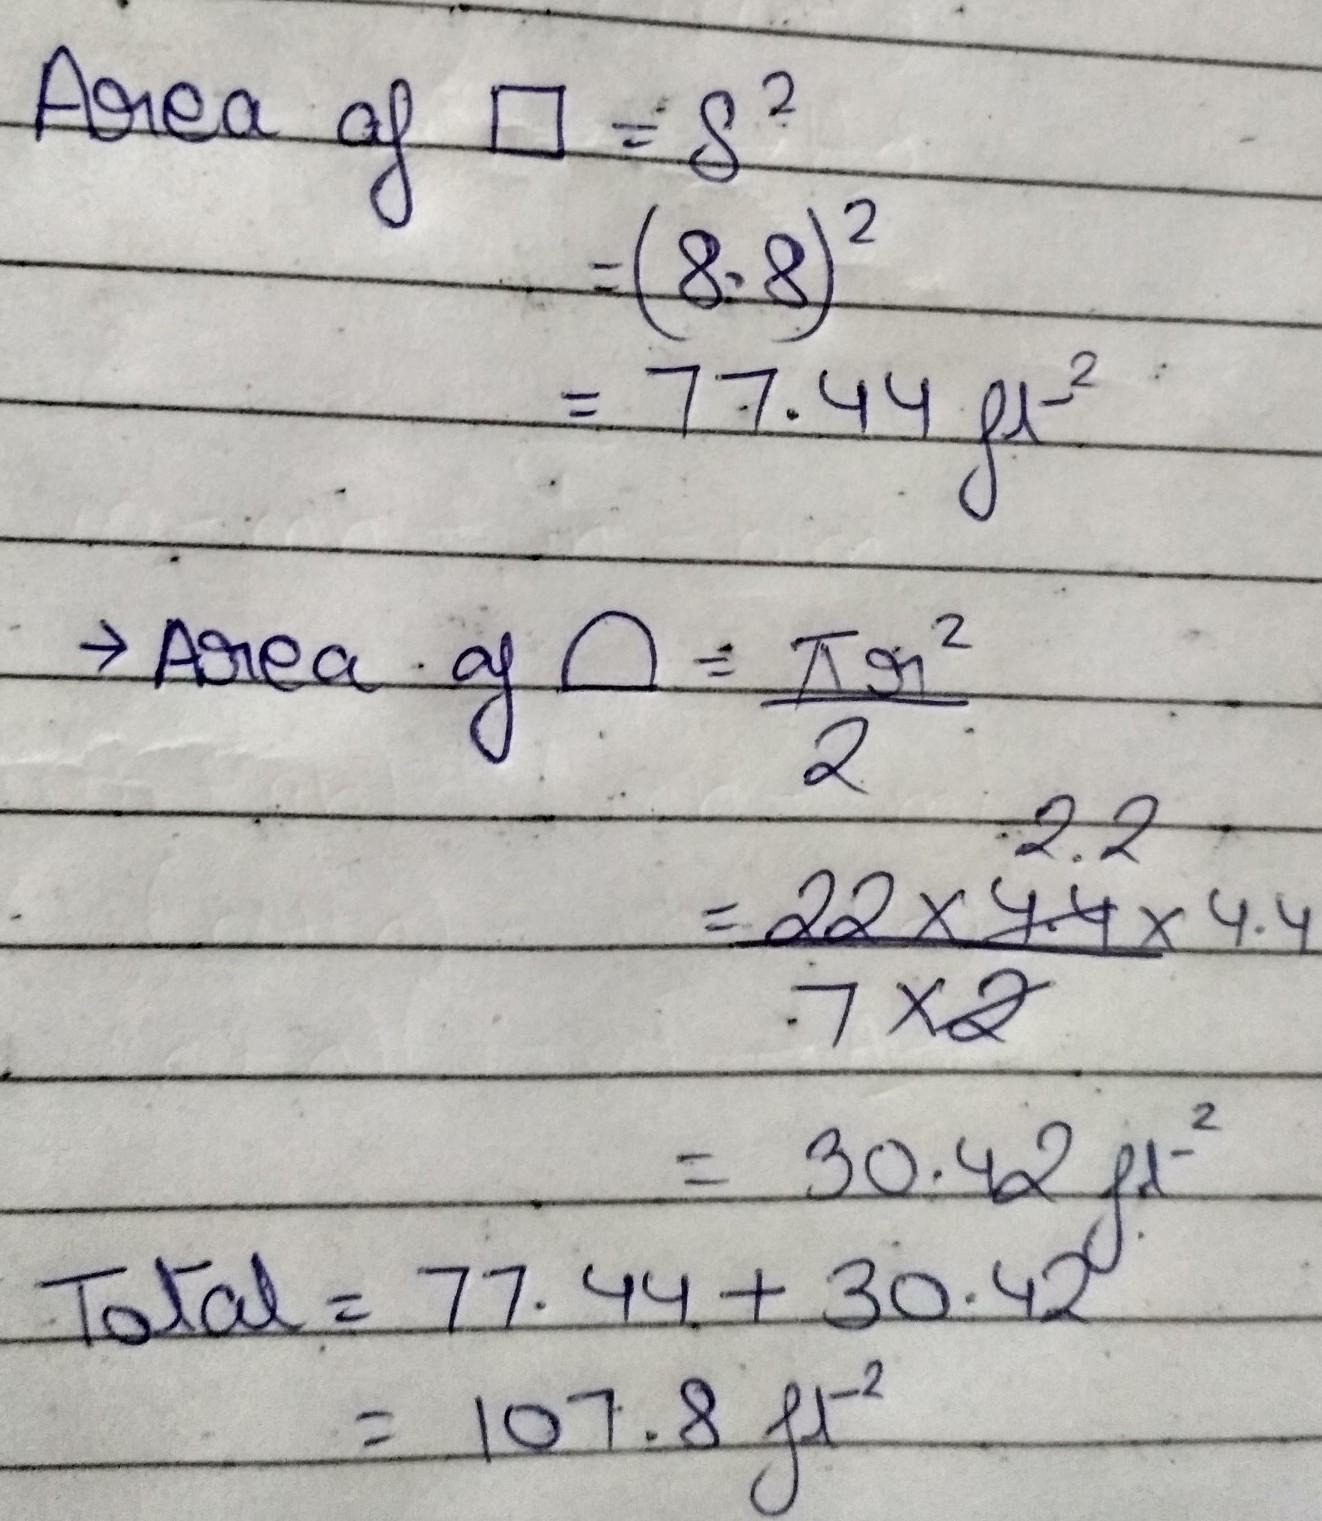 Area of □ = S²
= (8.8)²
= 77.44 ft²
→ Area of ⌓ = πr²
2
2.2
= 22 × 4.4 × 4.4
7 × 2
= 30.42 ft²
Total = 77.44 + 30.42
= 107.8 ft²